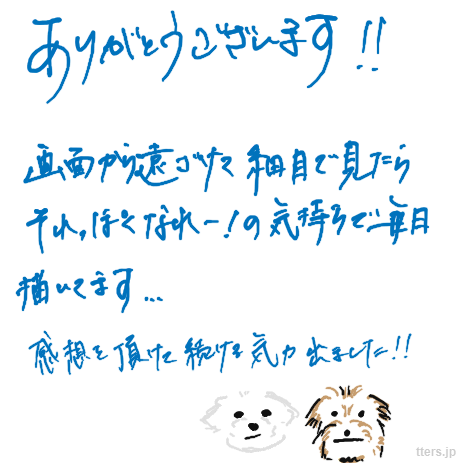 ありがとうございます!!
画面から遠ざけて細目で見たら
それっぽくなれー!の気持ちで毎日
描いてます...
感想を頂けて続ける気力出ました!!
tters.jp